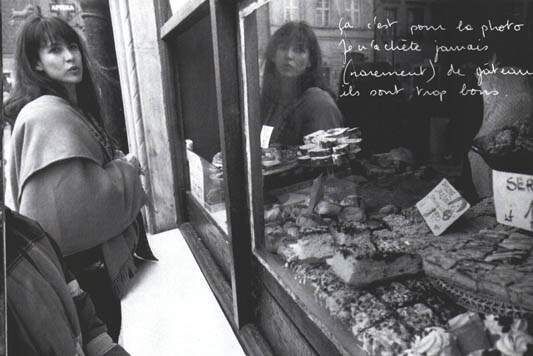 ça c'est pour la photo
Je n'achète jamais
(rarement) de gâteau
ils sont trop bons.
SER